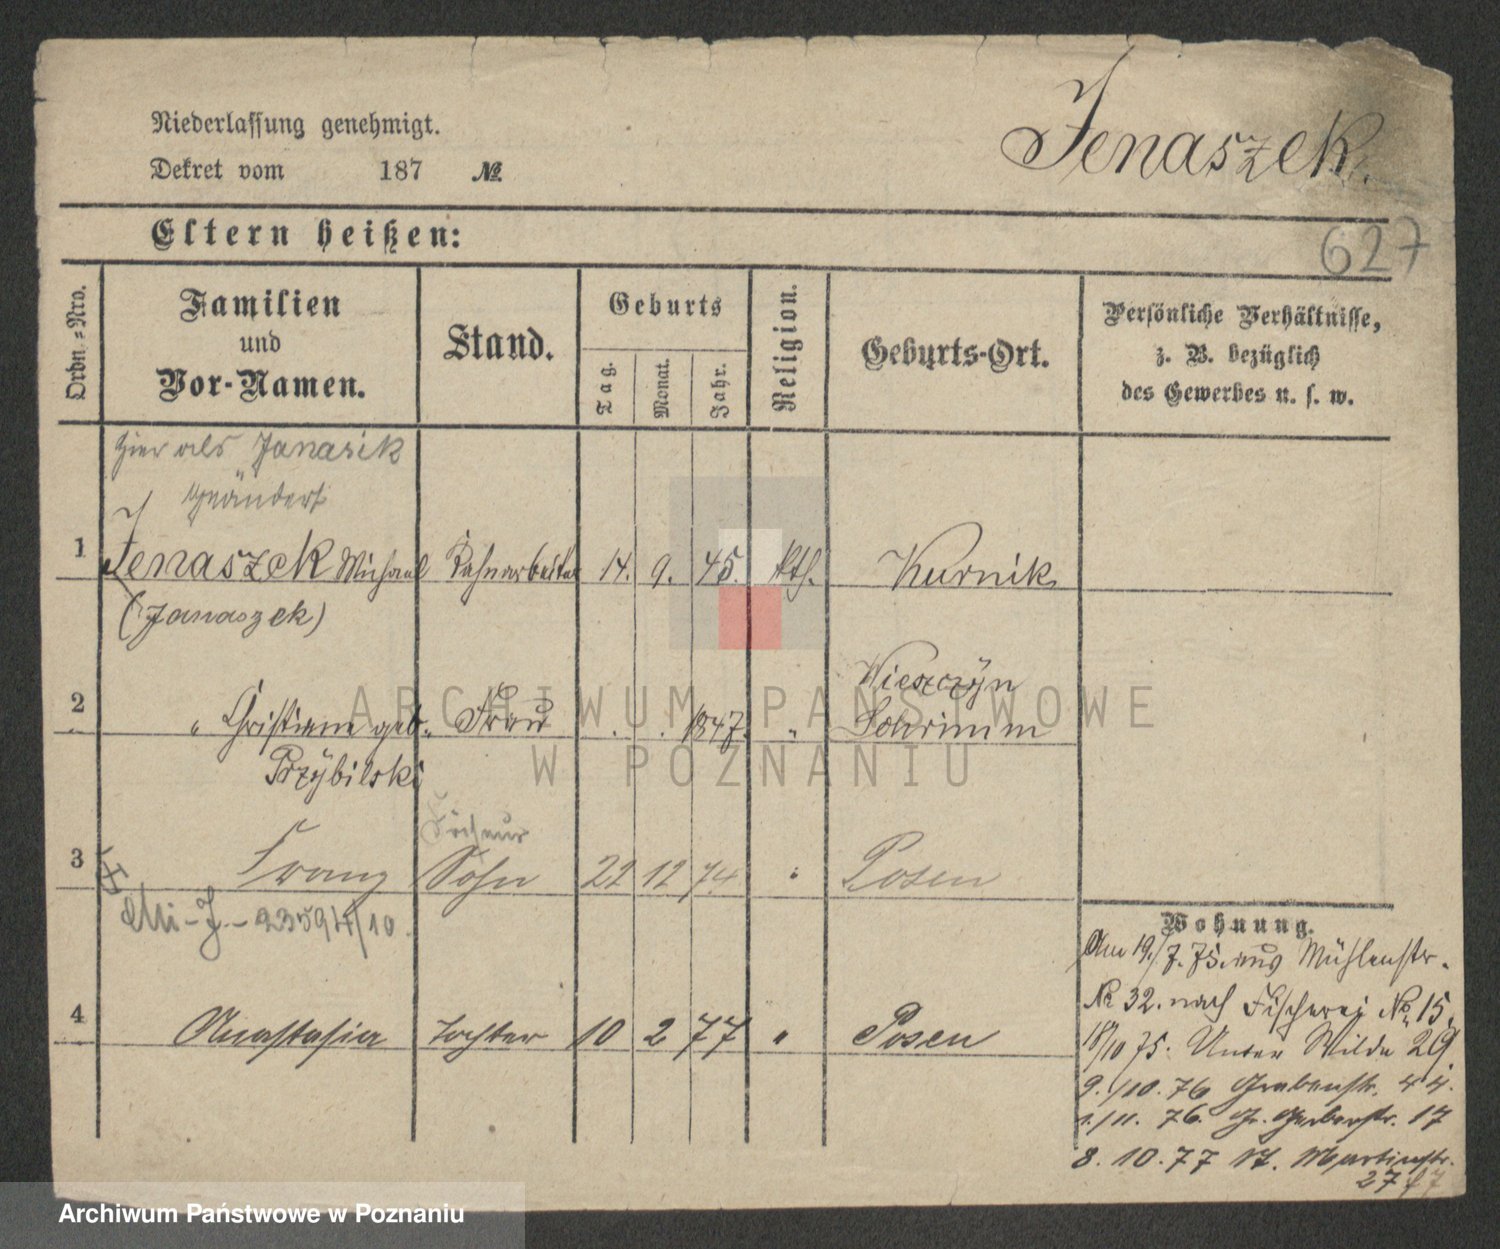 Jenaszek.
Niederlassung genehmigt.
Dekret vom 187 №
627
Eltern heißen:
Ordn.=Nro.
Familien
und
Vor-Namen.
Stand.
Geburts
Tag.
Monat.
Jahr.
Religion.
Geburts-Ort.
Persönliche Verhältnisse,
z. B. bezüglich
des Gewerbes u. s. w.
hier als Janasik
geändert
1 Jenaszek Michael Bahnarbeiter 14. 9. 45. kth. Kurnik
(Janaszek)
Wieszczÿn
2 " Christiane geb. Frau . . 1847. " Schrimm
Przÿbilski
Friseur
3 Franz Sohn 22 12 74 " Posen
Mi-J.-23594/10.
4 Anastasia Tochter 10 2 77 " Posen
Wohnung.
Am 19./7. 75. aus Mühlenstr.
№ 32. nach Fischerei №. 15.
18/10 75. Unter Wilda 29.
9./10. 76 Grabenstr. 44.
1./11. 76. Gr. Gerberstr. 17
8. 10. 77 Martinstr.
27
ARCHIWUM PAŃSTWOWE
W POZNANIU
Archiwum Państwowe w Poznaniu